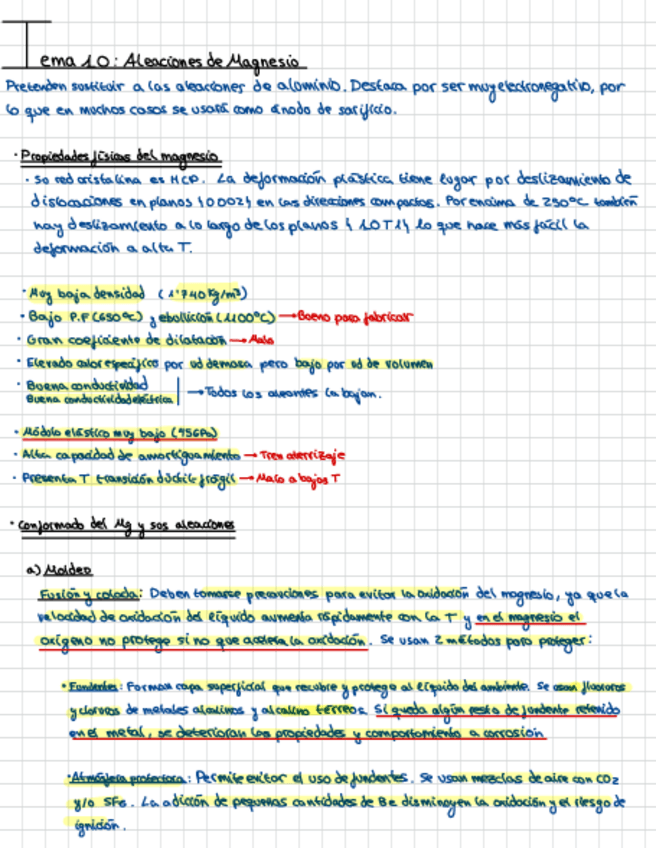 Tema 10: Aleaciones de Magnesio
Pretenden sustituir a las aleaciones de aluminio. Destaca por ser muy electronegativo, por
lo que en muchos casos se usará como ánodo de sacrificio.
· Propiedades físicas del magnesio
· Su red cristalina es HCP. La deformación plástica tiene lugar por deslizamiento de
dislocaciones en planos {0002} en las direcciones compactas. Por encima de 250ºC también
hay deslizamiento a lo largo de los planos {10T1} lo que hace más fácil la
deformación a alta T.
· Muy baja densidad (1'740 Kg/m³)
· Bajo P.F (650ºC) y ebullición (1100ºC) → Bueno para fabricar
· Gran coeficiente de dilatación → Malo
· Elevado calor específico por ud de masa pero bajo por ud de volumen
· Buena conductividad
Buena conductividad eléctrica → Todos los aleantes la bajan.
· Módulo elástico muy bajo (45GPa)
· Alta capacidad de amortiguamiento → Tren aterrizaje
· Presenta T transición dúctil-frágil → Malo a bajas T
· Conformado del Mg y sus aleaciones
a) Moldeo
Fusión y colada: Deben tomarse precauciones para evitar la oxidación del magnesio, ya que la
velocidad de oxidación del líquido aumenta rápidamente con la T y en el magnesio el
oxígeno no protege si no que acelera la oxidación. Se usan 2 métodos para proteger:
· Fundentes: Forman capa superficial que recubre y protege al líquido del ambiente. Se usan fluoruros
y cloruros de metales alcalinos y alcalino térreos. Si queda algún resto de fundente retenido
en el metal, se deterioran las propiedades y comportamiento a corrosión
· Atmósfera protectora: Permite evitar el uso de fundentes. Se usan mezclas de aire con CO2
y/o SF6. La adición de pequeñas cantidades de Be disminuyen la oxidación y el riesgo de
ignición.